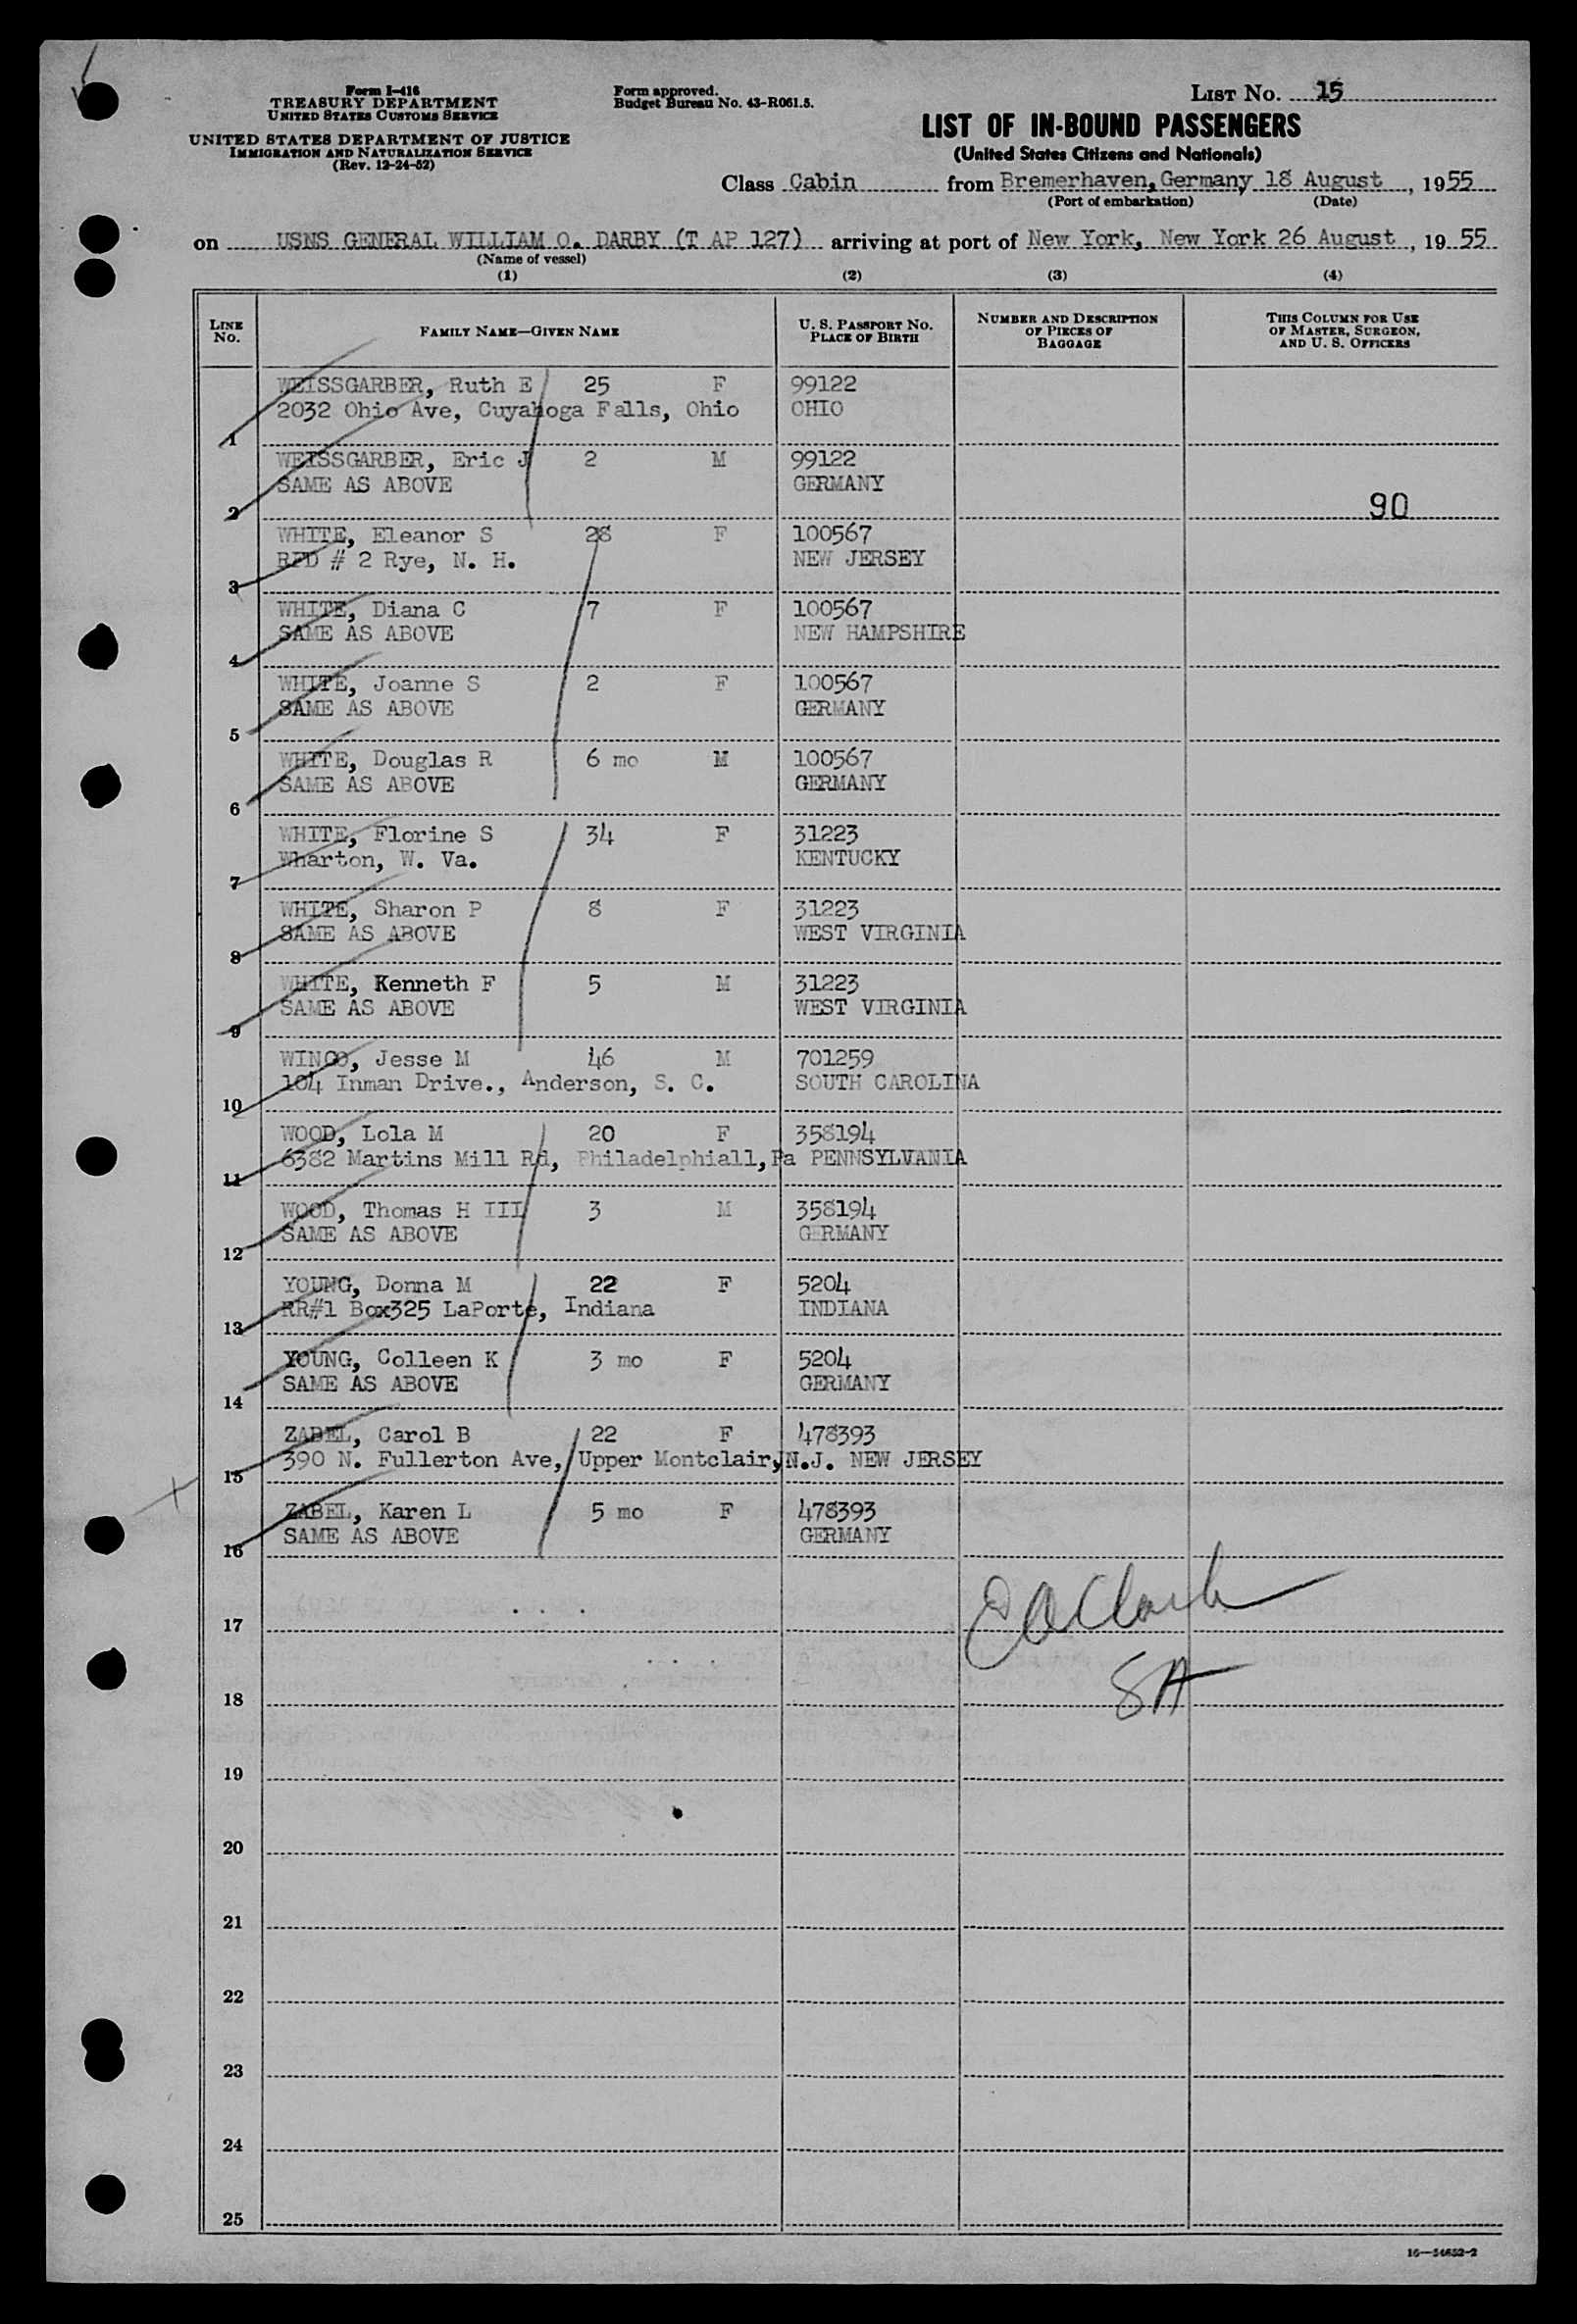 Form I-416
TREASURY DEPARTMENT
UNITED STATES CUSTOMS SERVICE
UNITED STATES DEPARTMENT OF JUSTICE
IMMIGRATION AND NATURALIZATION SERVICE
(Rev. 12-24-52)
Form approved.
Budget Bureau No. 43-R061.5.
LIST No. 15
LIST OF IN-BOUND PASSENGERS
(United States Citizens and Nationals)
Class Cabin from Bremerhaven, Germany 18 August, 1955
(Port of embarkation) (Date)
on USNS GENERAL WILLIAM O. DARBY (T AP 127) arriving at port of New York, New York 26 August, 1955
(Name of vessel)
(1) (2) (3) (4)
LINE No. FAMILY NAME—GIVEN NAME U. S. PASSPORT No. PLACE OF BIRTH NUMBER AND DESCRIPTION OF PIECES OF BAGGAGE THIS COLUMN FOR USE OF MASTER, SURGEON, AND U. S. OFFICERS
WEISSGARBER, Ruth E 25 F 99122
2032 Ohio Ave, Cuyahoga Falls, Ohio OHIO
1
WEISSGARBER, Eric J 2 M 99122
SAME AS ABOVE GERMANY
2 90
WHITE, Eleanor S 28 F 100567
RFD # 2 Rye, N. H. NEW JERSEY
3
WHITE, Diana C 7 F 100567
SAME AS ABOVE NEW HAMPSHIRE
4
WHITE, Joanne S 2 F 100567
SAME AS ABOVE GERMANY
5
WHITE, Douglas R 6 mo M 100567
SAME AS ABOVE GERMANY
6
WHITE, Florine S 34 F 31223
Wharton, W. Va. KENTUCKY
7
WHITE, Sharon P 8 F 31223
SAME AS ABOVE WEST VIRGINIA
8
WHITE, Kenneth F 5 M 31223
SAME AS ABOVE WEST VIRGINIA
9
WINGO, Jesse M 46 M 701259
104 Inman Drive., Anderson, S. C. SOUTH CAROLINA
10
WOOD, Lola M 20 F 358194
6382 Martins Mill Rd, Philadelphiall, Pa PENNSYLVANIA
11
WOOD, Thomas H III 3 M 358194
SAME AS ABOVE GERMANY
12
YOUNG, Donna M 22 F 5204
RR#1 Box325 LaPorte, Indiana INDIANA
13
YOUNG, Colleen K 3 mo F 5204
SAME AS ABOVE GERMANY
14
ZABEL, Carol B 22 F 478393
390 N. Fullerton Ave, Upper Montclair, N.J. NEW JERSEY
15
ZABEL, Karen L 5 mo F 478393
SAME AS ABOVE GERMANY
16
17
18 SA
19
20
21
22
23
24
25
16—54652-2